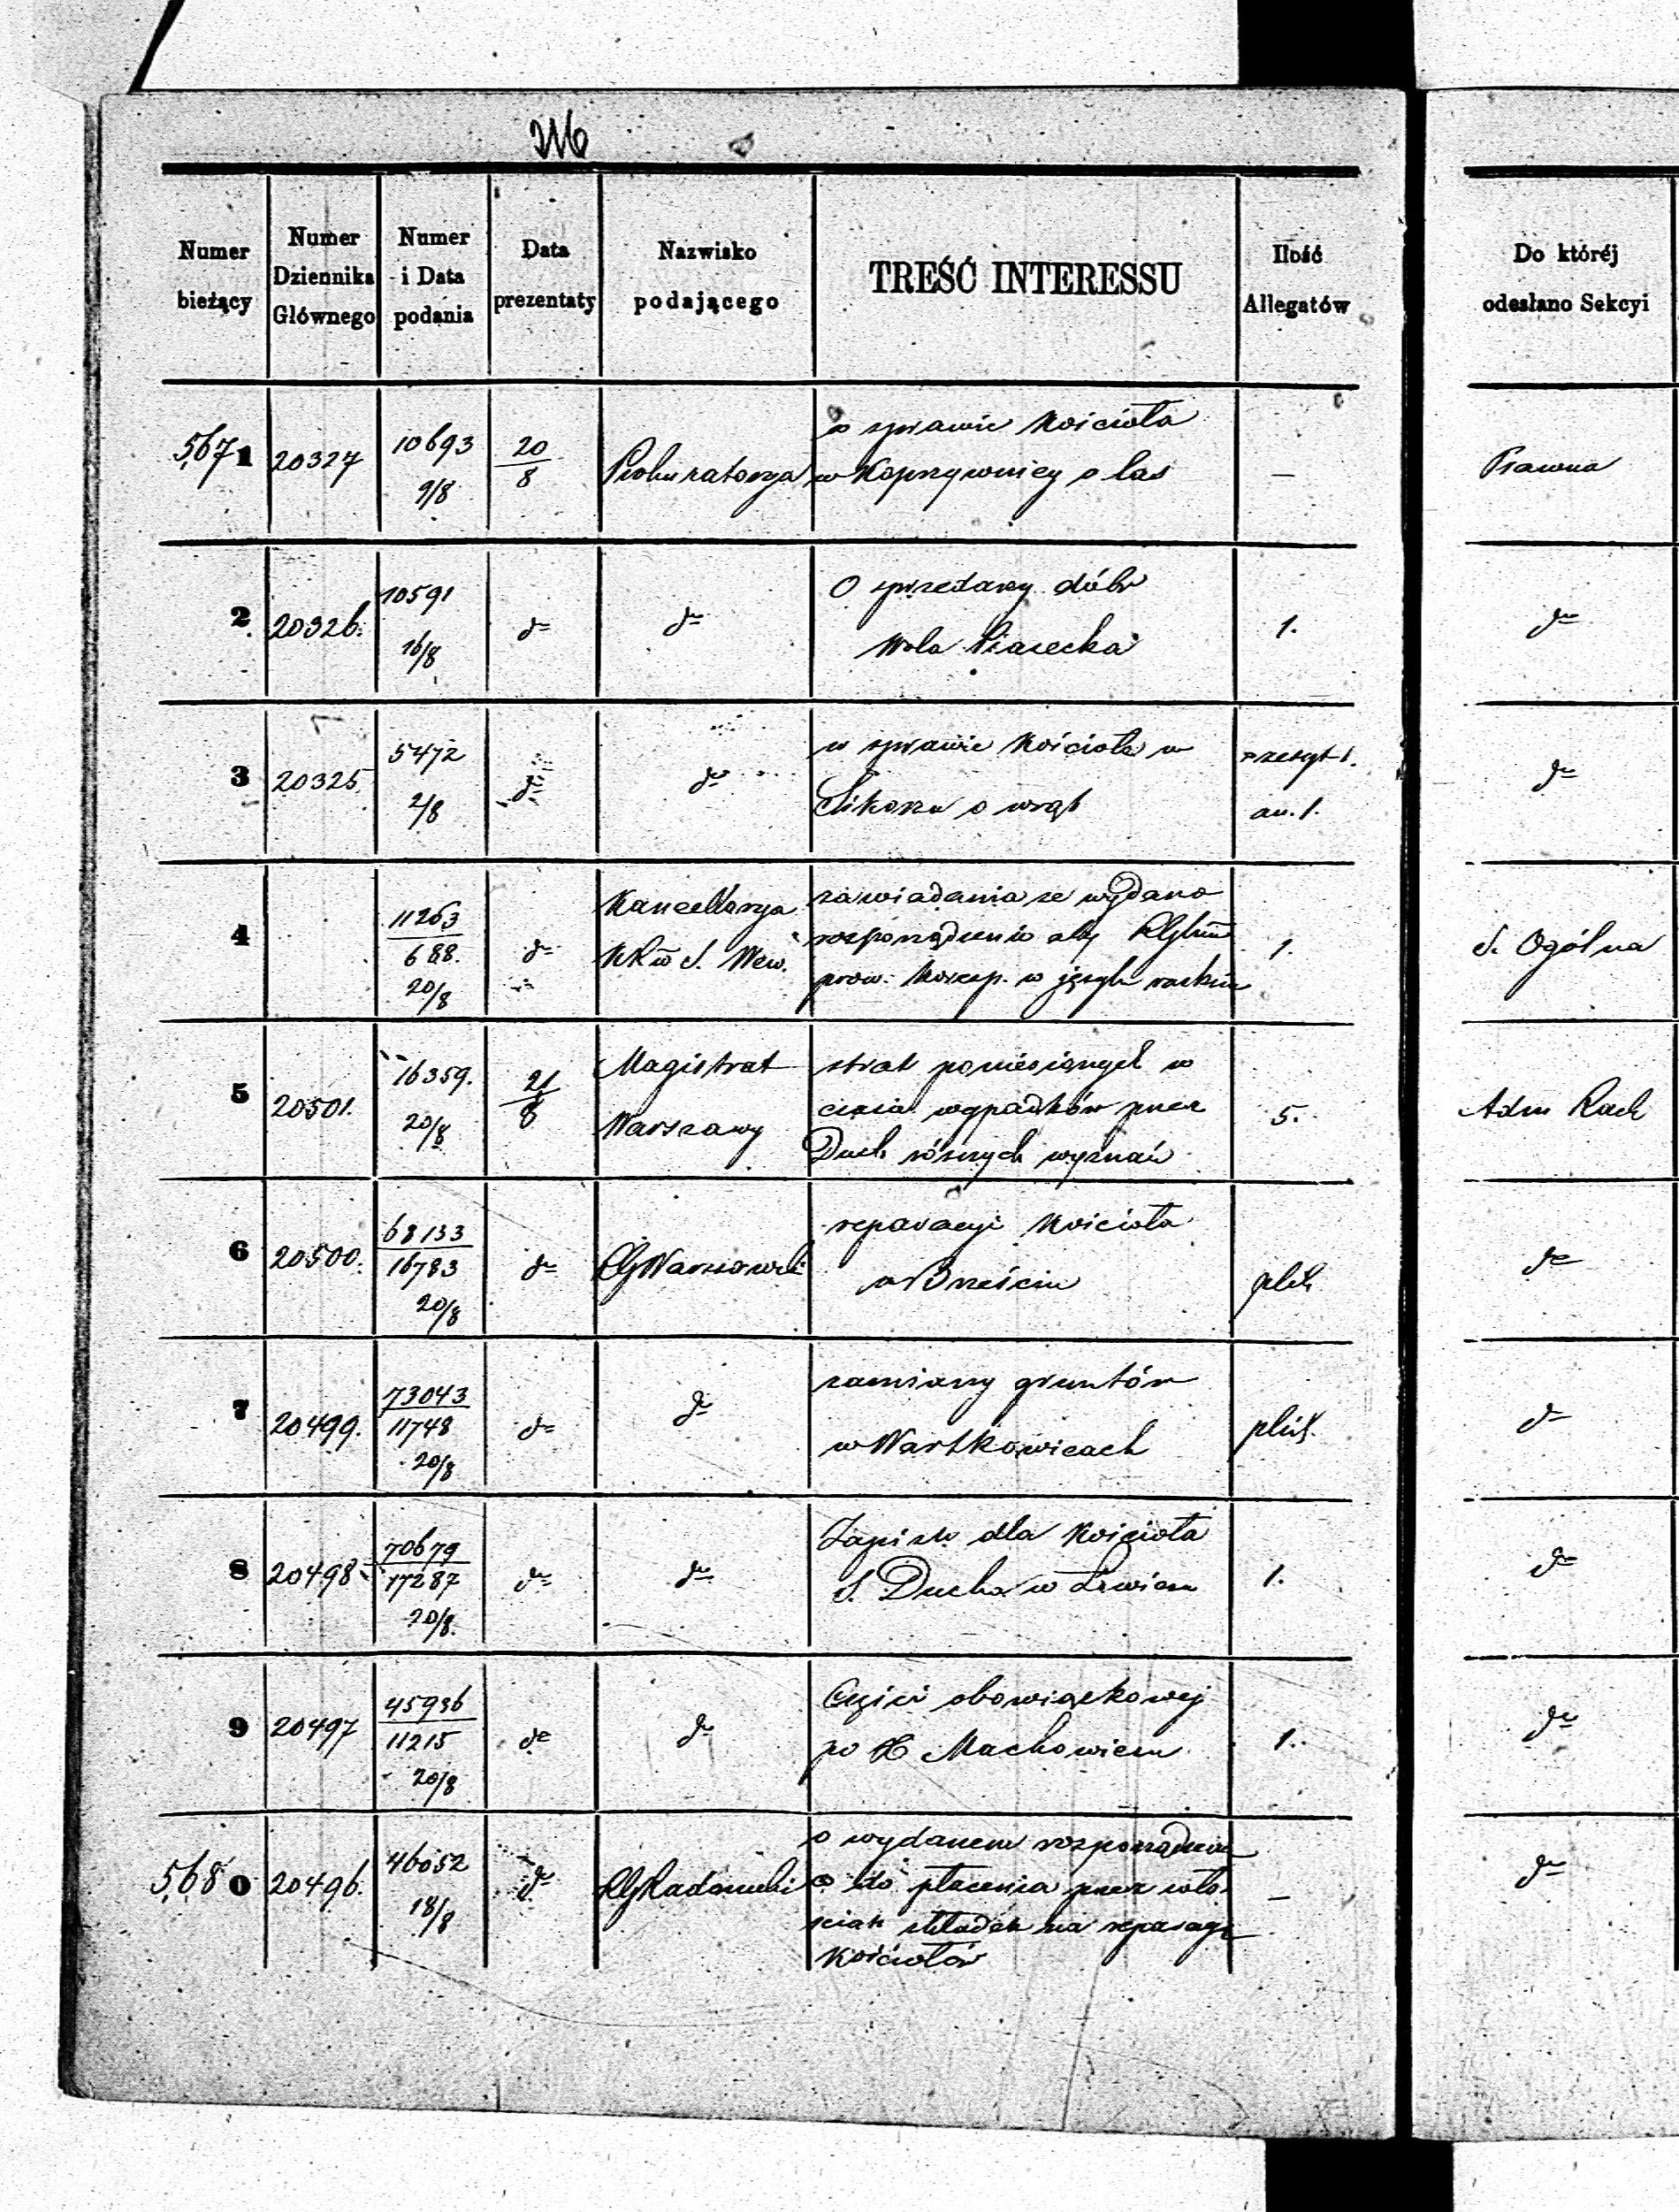 216
Numer bieżący
Numer Dziennika Głównego
Numer i Data podania
Data prezentaty
Nazwisko podającego
TREŚĆ INTERESSU
Ilość Allegatów
Do któréj odesłano Sekcyi
5671 20327 10693 9/8 20/8 Prokuratorya w sprawie Kościoła
w Koprzywnicy o las — Prawna
2 20326. 10591 16/8 do do O sprzedaży dóbr
Wola Piasecka 1. do
3 20325 5472 2/8 do do w sprawie Kościoła w
Sikorzu o wrąb zeszyt 1.
an. 1. do
4 11263 688. 20/8 do Kancellarya
KRw S. Wew. zawiadamia że wydano
rozporządzenie aby RGbin
prow. Koresp. w języku ruskim 1. S. Ogólna
5 20501. 16359. 20/8 21/8 Magistrat
Warszawy strat poniesionych w
czasie wypadków przez
Duch. różnych wyznań 5. Adm Rach
6 20500. 68133 16783 20/8 do RGWarszawski reparacyi Kościoła
w Brześciu plik do
7 20499. 73043 11748 20/8 do do zamiany gruntów
w Wartkowicach plik. do
8 20498 70679 17287 20/8. do do Zapisu dla Kościoła
S. Ducha w Łowiczu 1. do
9 20497 45936 11215 20/8 do do Części obowiązkowej
po X Machowiczu 1. do
5680 20496. 46052 18/8 do RGRadomski o wydanem rozporządzeniu
co do płacenia przez wło-
ścian składek na reparacye
Kościołów — do